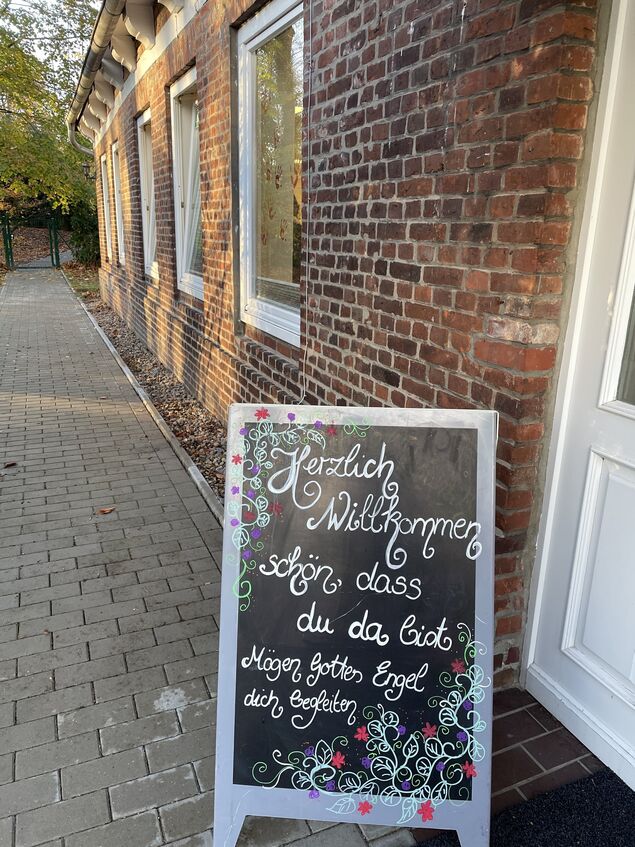 Herzlich
Willkommen
schön, dass
du da bist
Mögen Gottes Engel
dich begleiten